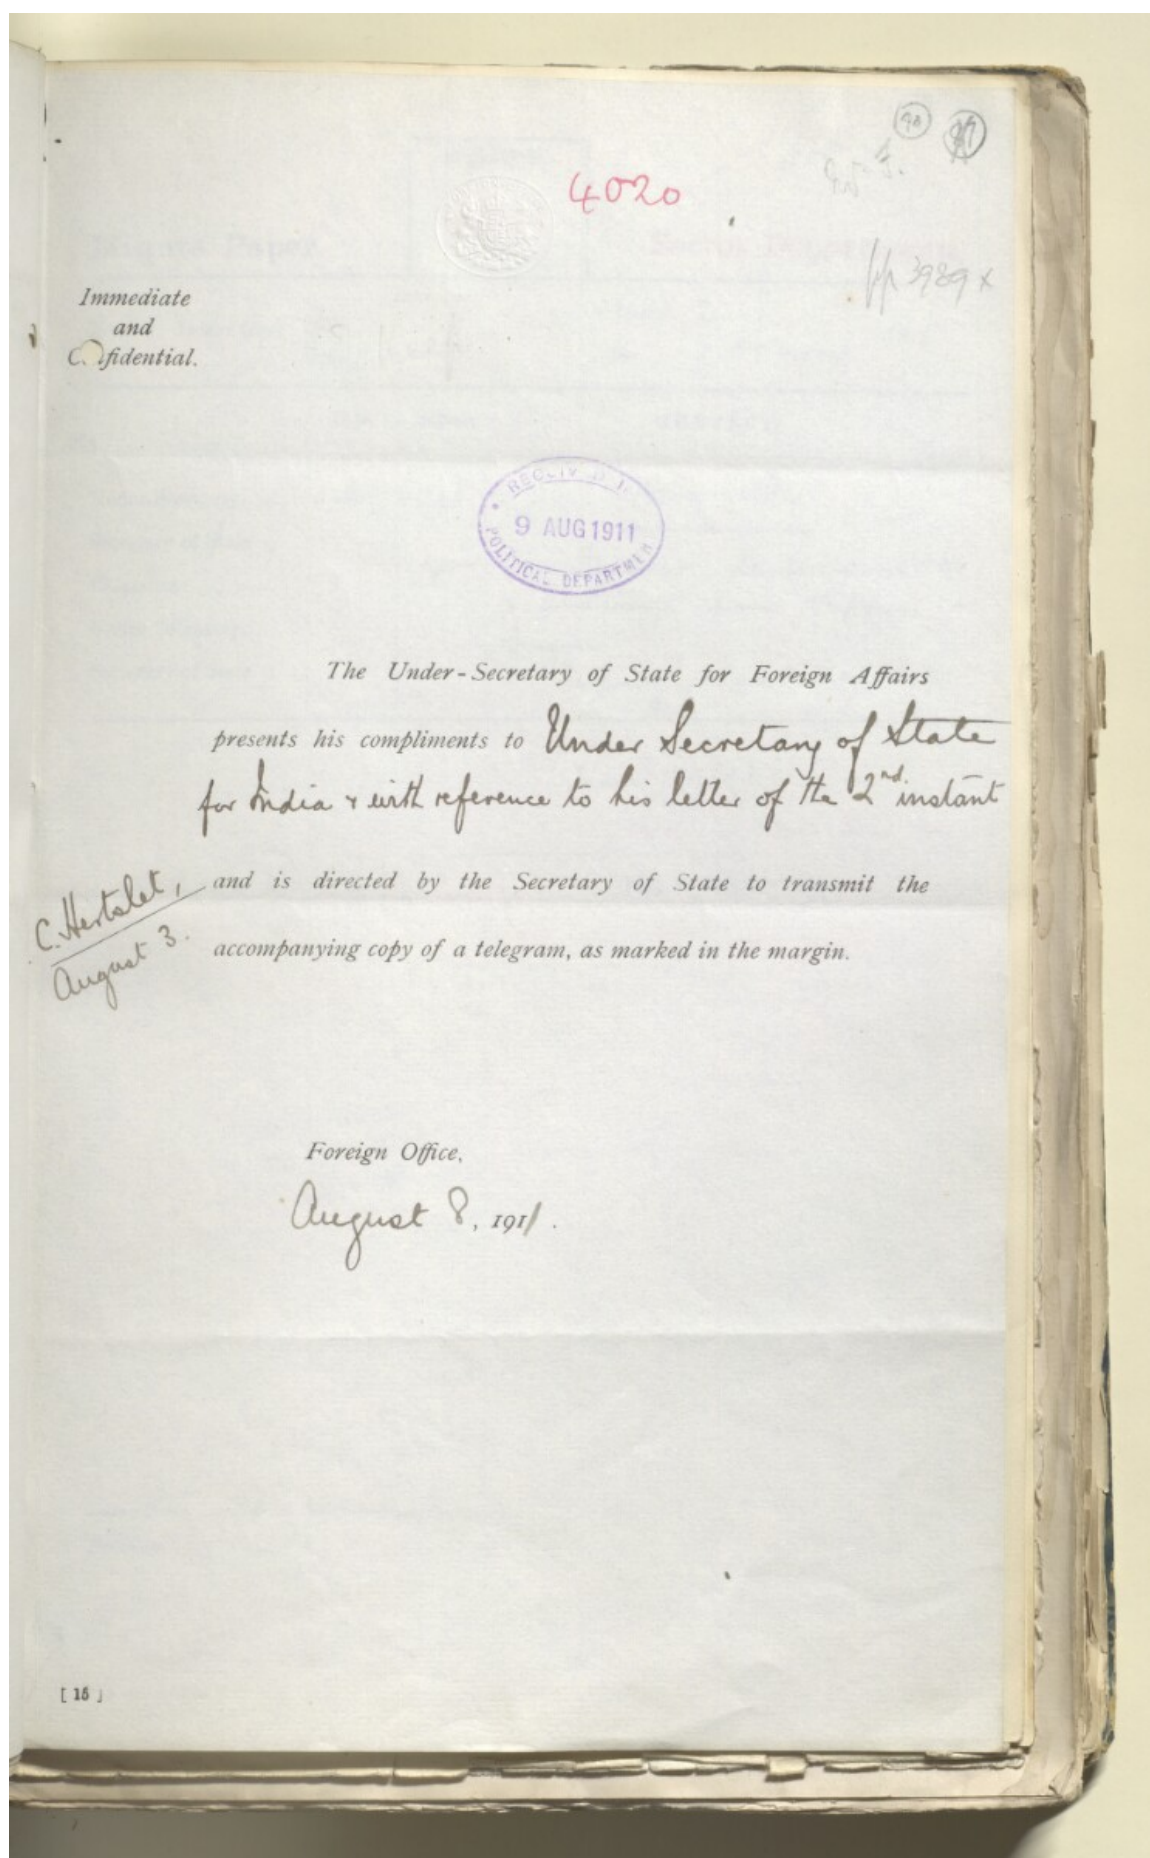 98
4020
3989 x
Immediate
and
C fidential.
RECEIV
9 AUG 1911
POLITICAL DEPARTMEN
The Under-Secretary of State for Foreign Affairs
presents his compliments to Under Secretary of State
for India & with reference to his letter of the 2nd instant
C. Hertslet,
August 3.
and is directed by the Secretary of State to transmit the
accompanying copy of a telegram, as marked in the margin.
Foreign Office,
August 8, 1911.
[ 15 ]